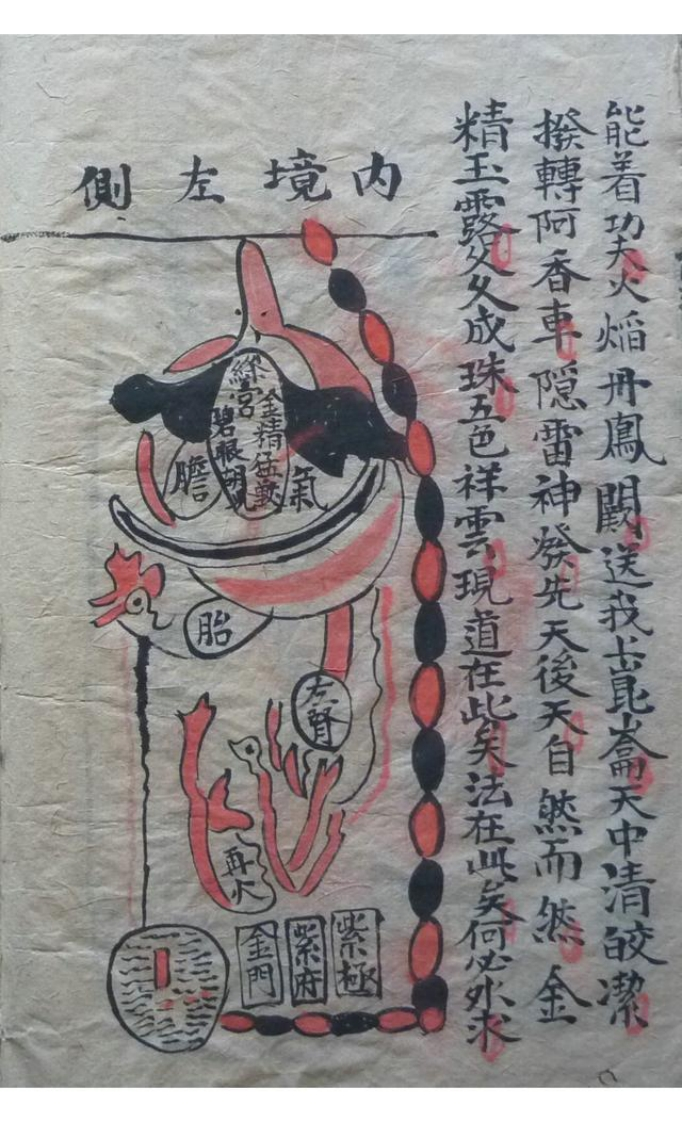 能着功夫火熖丹鳳闕送我上崑崙天中清皎潔
撥轉阿香車隠雷神發先天後天自然而然金
精玉露久久成珠五色祥雲現道在此矣法在此矣何必外求
内境左側
絳宮
金精猛獸
碧眼胡兒
膽
氣
胎
左腎
再火
紫極
紫府
金門